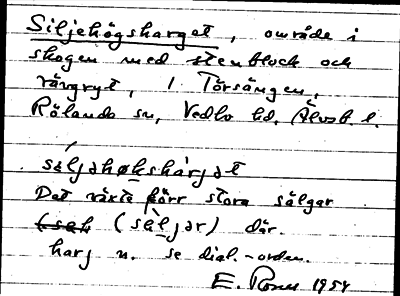 Siljehögsharget, område i
skogen med stenblock och
rävgryt, 1 Törsängen,
Rölanda sn, Vedbo hd, Älvsb. l.
sìljahøksharjət
Det växte förr stora sälgar
(sæljər) där.
harj n. se dial.-orden.
E. 1954